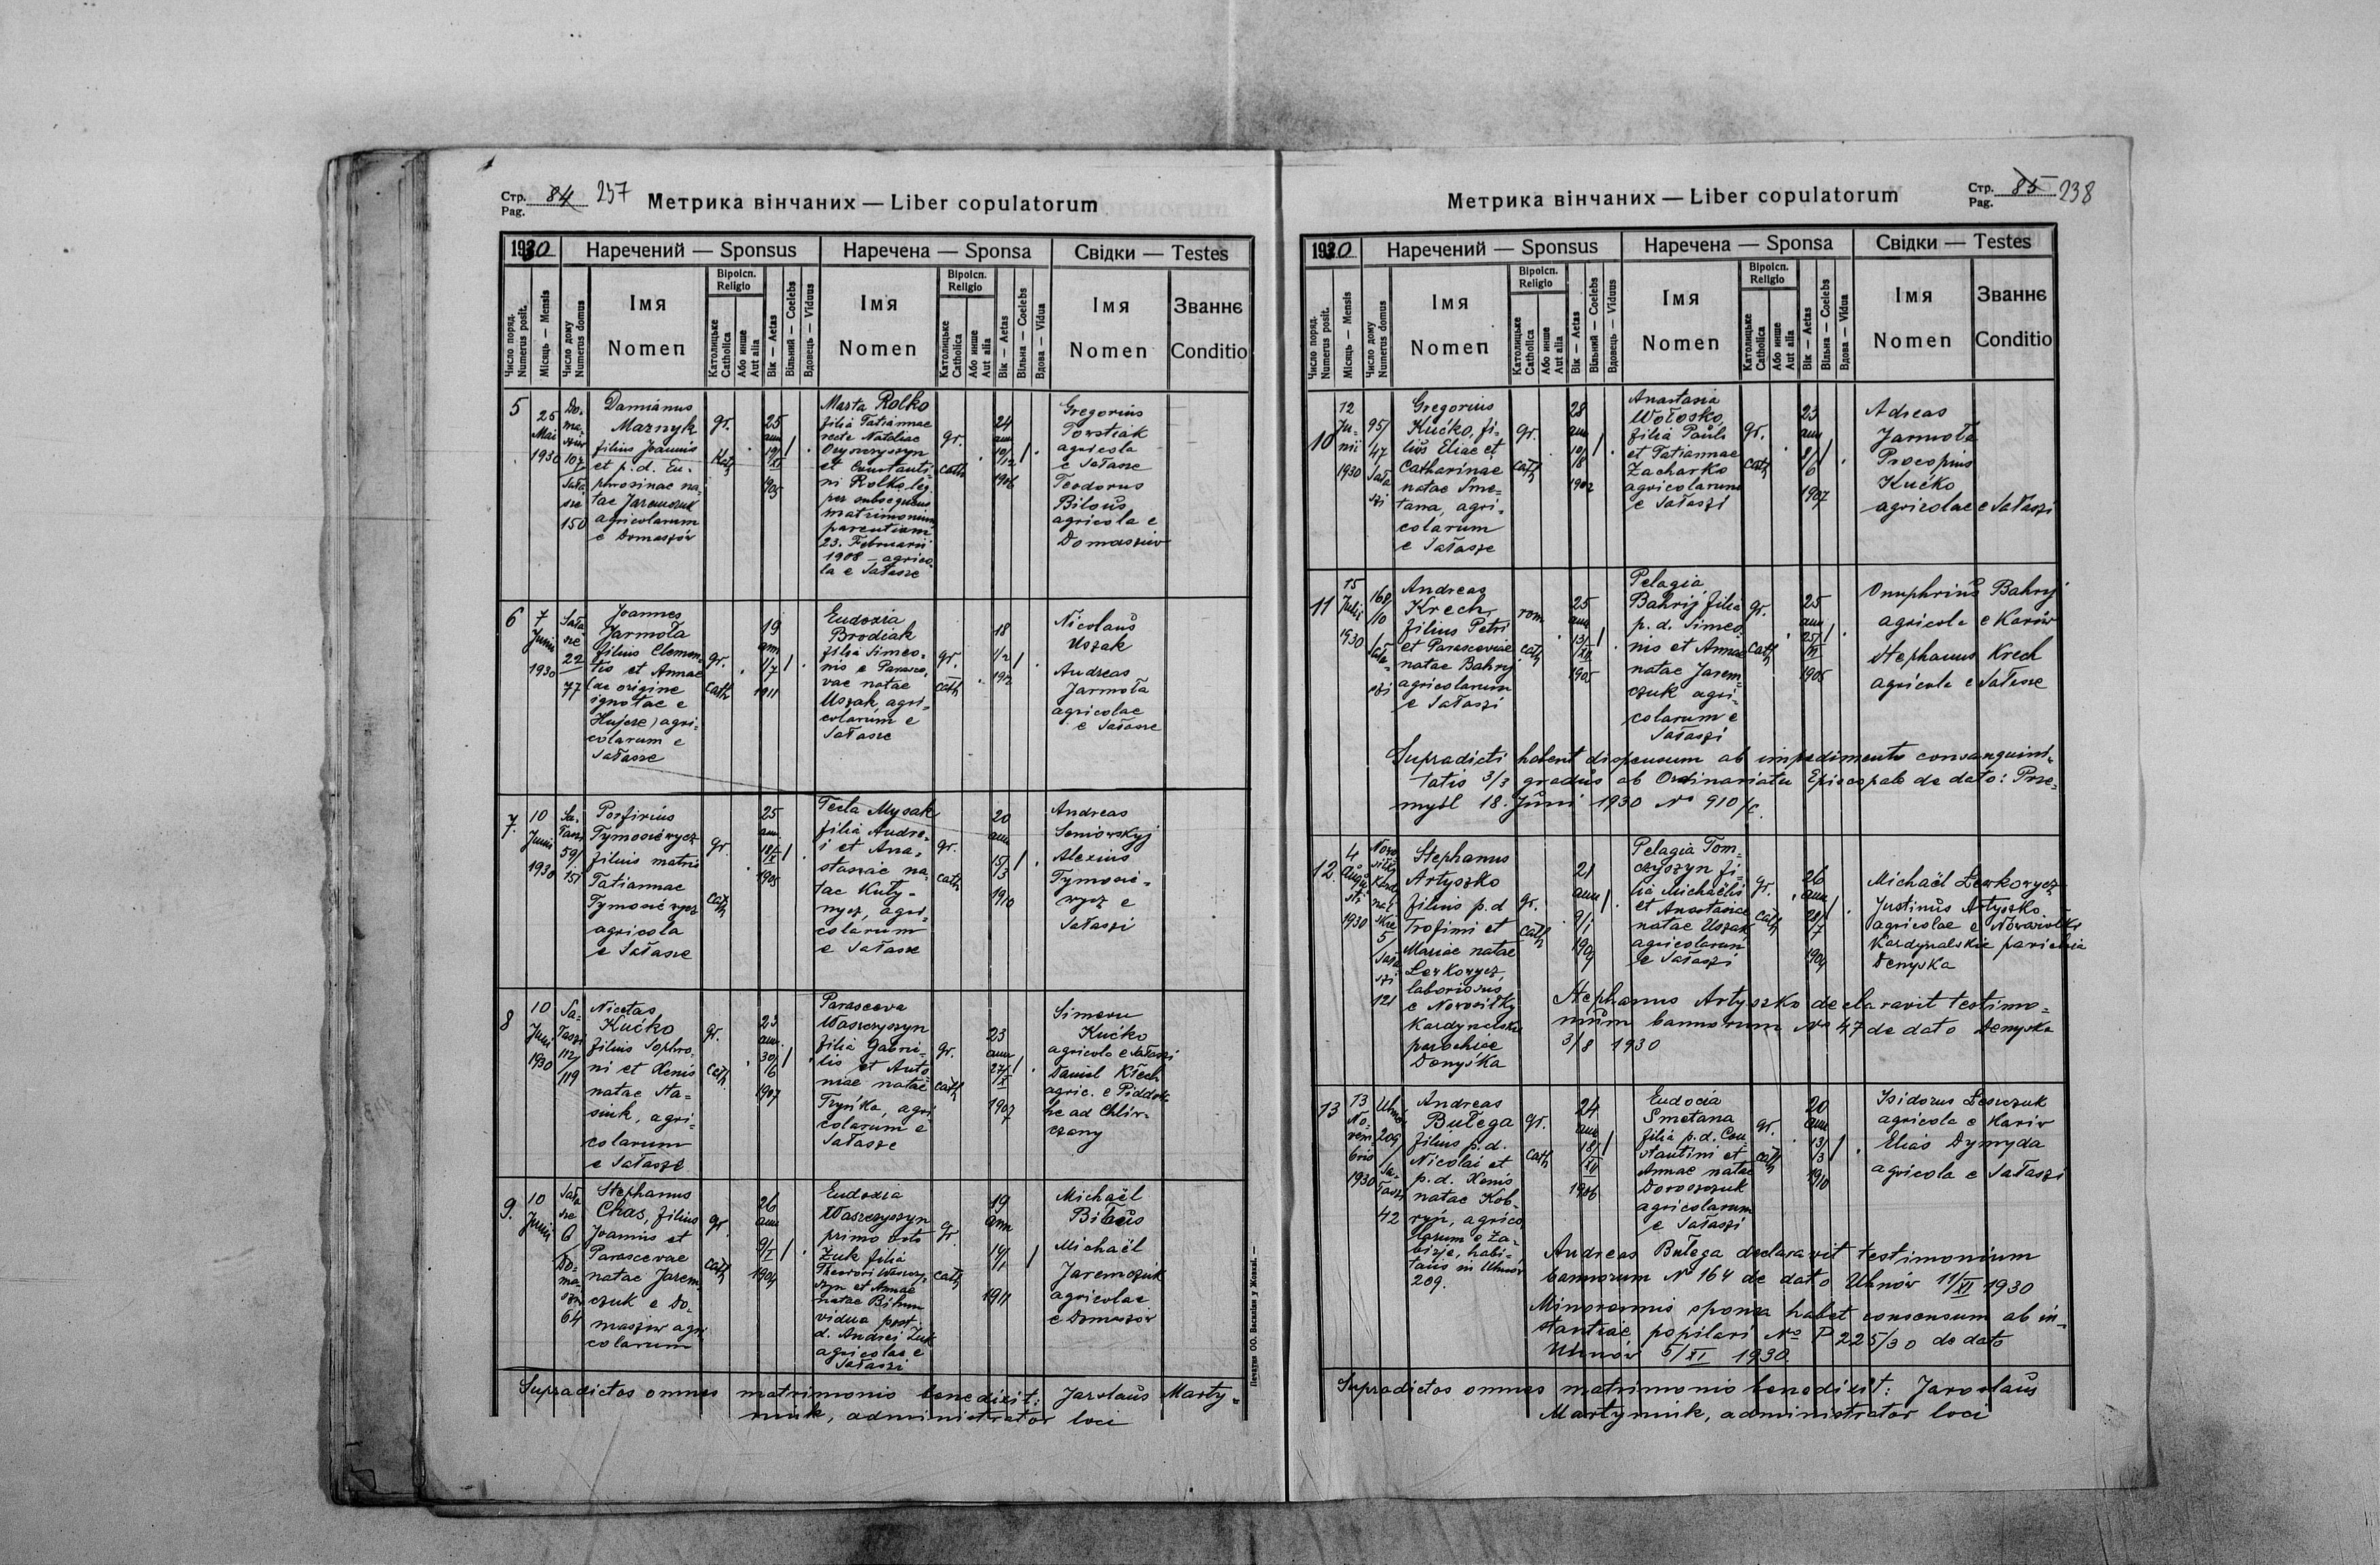 Стр. Pag. 84 237
Метрика вінчаних — Liber copulatorum
1930
Наречений — Sponsus
Наречена — Sponsa
Свідки — Testes
Число поряд. Numerus posit.
Місяць — Mensis
Число дому Numerus domus
Імя Nomen
Віроісп. Religio
Католицьке Catholica
Або инше Aut alia
Вік — Aetas
Вільний — Coelebs
Вдовець — Viduus
Імя Nomen
Віроісп. Religio
Католицьке Catholica
Або инше Aut alia
Вік — Aetas
Вільна — Coelebs
Вдова — Vidua
Імя Nomen
Званнє Conditio
5
25
Mai
1930
Do-
ma-
szów
107
Sała-
sze
150
Damianus
Maznyk
filius Joannis
et p. d. Eu-
phrosinae na-
tae Jaremczuk
agricolarum
e Domaszów
gr.
Kath
25
ann
19/XI
1905
Marta Rolko
filia Tatiannae
recte Nataliae
et Constanti-
ni Rolko leg.
per subsequens
matrimonium
parentium
23. Februarii
1908 – agrico-
la e Sałasze
gr.
cath
24
ann
10/12
1906
Gregorius
Powstiak
agricola
e Sałasze
Teodorus
Bilous
agricola e
Domaszów
6
7
Junii
1930
Sała
sze
22
77
Joannes
Jarmoła
filius Clemen-
tis et Annae
(de origine
ignotae e
Hujcze) agri-
colarum e
Sałasze
gr.
cath
19
ann
1/7
1911
Eudoxia
Brodiak
filia Simeo-
nis e Parasce-
vae natae
Uszak, agri-
colarum e
Sałasze
gr.
cath
18
1/2
1912
Nicolaus
Uszak
Andreas
Jarmoła
agricolae
e Sałasze
7.
10
Junii
1930
Sa-
łasze
59/
151
Porfirius
Tymosiewycz
filius matris
Tatiannae
Tymosiewycz
agricola
e Sałasze
gr.
cath
25
ann
18/X
1905
Tecla Mysak
filia Andre-
i et Ana-
stasiae na-
tae Kuły-
nycz, agri-
colarum
e Sałasze
gr.
cath
20
ann
15/3
1910
Andreas
Seniowskyj
Alexius
Tymosie-
wycz e
Sałaszi
8
10
Juni
1930
Sa-
łaszi
112/
119
Nicetas
Kućko
filius Sophro-
ni et Xenis
natae Sta-
siuk, agri-
colarum
e Sałasze
gr.
cath
23
ann.
30/6
1907
Parasceva
Waszczyszyn
filia Gabrie-
lis et Anto-
niae natae
Tzyńka, agri
colarum e
Sałasze
gr.
cath
23
ann
27/X
1907
Simeon
Kućko
agricola e Sałaszi
Daniel Krech
agric. e Piddub-
ne ad Chliw-
czany
9.
10
Junii
Sała
sze
6
Do-
ma-
szów
64
Stephanus
Chas, filius
Joannis et
Parascevae
natae Jarem-
czuk e Do-
maszów agri
colarum
gr
cath
26
ann
9/I
1904
Eudoxia
Waszczyszyn
primo voto
Żuk filia
Theodori Waszczy-
szyn et Annae
natae Bihun
vidua post
d. Andrei Żuk
agricolae e
Sałaszi
gr
cath
19
ann
14/1
1911
Michaël
Bilous
Michaël
Jaremczuk
agricolae
e Domaszów
Supradictos omnes matrimonio benedixit: Jaroslaus Marty-
niuk, administrator loci
Стр. Pag. 85 238
Метрика вінчаних — Liber copulatorum
1930
Наречений — Sponsus
Наречена — Sponsa
Свідки — Testes
Число поряд. Numerus posit.
Місяць — Mensis
Число дому Numerus domus
Імя Nomen
Віроісп. Religio
Католицьке Catholica
Або инше Aut alia
Вік — Aetas
Вільний — Coelebs
Вдовець — Viduus
Імя Nomen
Віроісп. Religio
Католицьке Catholica
Або инше Aut alia
Вік — Aetas
Вільна — Coelebs
Вдова — Vidua
Імя Nomen
Званнє Conditio
10
12
Ju-
nii
1930
95/
47
Sała
szi
Gregorius
Kućko, fi-
lius Eliae et
Catharinae
natae Sme-
tana, agri-
colarum
e Sałasze
gr.
cath
28
ann
10/8
1902
Anastasia
Wołosko,
filia Pauli
et Tatiannae
Zacharko
agricolarum
e Sałaszi
gr.
cath
23
ann
8/6
1907
Adreas
Jarmoła
Procopius
Kućko
agricolae e Sałaszi
11
15
Julii
1930
168/
10
Sała-
szi
Andreas
Krech,
filius Petri
et Parasceviae
natae Bahryj
agricolarum
e Sałaszi
rom
cath
25
ann
13/XII
1905
Pelagia
Bahrij filia
p. d. Simeo-
nis et Annae
natae Jarem-
czuk agri-
colarum e
Sałaszi
gr.
cath
25
ann
25/VI
1905
Onuphrius Bahryj
agricola e Karów
Stephanus Krech
agricola e Sałasze
Supradicti habent dispensum ab impedimento consanguini-
tatis 3/3 gradus ab Ordinariatu Episcopale de dato: Prze-
myśl 18. Juni 1930 No 910/c.
12.
4
Augu
sti
1930
Nowo
siłky
Kardy
nal
skie
5
/Sała
szi
121
Stephanus
Artyszko
filius p. d
Trofimi et
Mariae natae
Lewkowycz,
laboriosus
e Nowosiłky
Kardynalskie
parochiae
Denyśka
gr.
cath
21
ann
9/1
1909
Pelagia Tom-
czyszyn fi-
lia Michaëlis
et Anastasiae
natae Uszak
agricolarum
e Sałaszi
gr.
cath
26
ann
28/7
1904
Michaël Lewkowycz
Justinus Artyszko
agricolae e Nowosiołki
Kardynalskie parichia
Denyska
Stephanus Artyszko declaravit testimo-
nium bannorum No 47 de dato Denyska
3/8 1930
13
13
No-
vem
bris
1930
Uhnów
209
/
Sa-
łaszi
42
Andreas
Bułega
filius p. d.
Nicolai et
p. d. Xenis
natae Kob-
ryń, agrico
larum e Za-
birje, habi-
tans in Uhnów
209.
gr.
cath
24
ann
18/XII
1906
Eudocia
Smetana
filia p. d. Con-
stantini et
Annae natae
Doroszczuk
agricolarum
e Sałaszi
gr.
cath
20
ann
13/3
1910
Isidorus Leszczuk
agricola e Kariw
Elias Dymyda
agricola e Sałaszi
Andreas Bułega declaravit testimonium
bannorum No 164 de dato Uhnów 11/XI 1930
Minorennis sponsa habet consensum ab in-
stantiae popilari No P 225/30 de dato
Uhnów 5/XI 1930.
Supradictos omnes matrimonio benedixit: Jaroslaus
Martyniuk, administrator loci